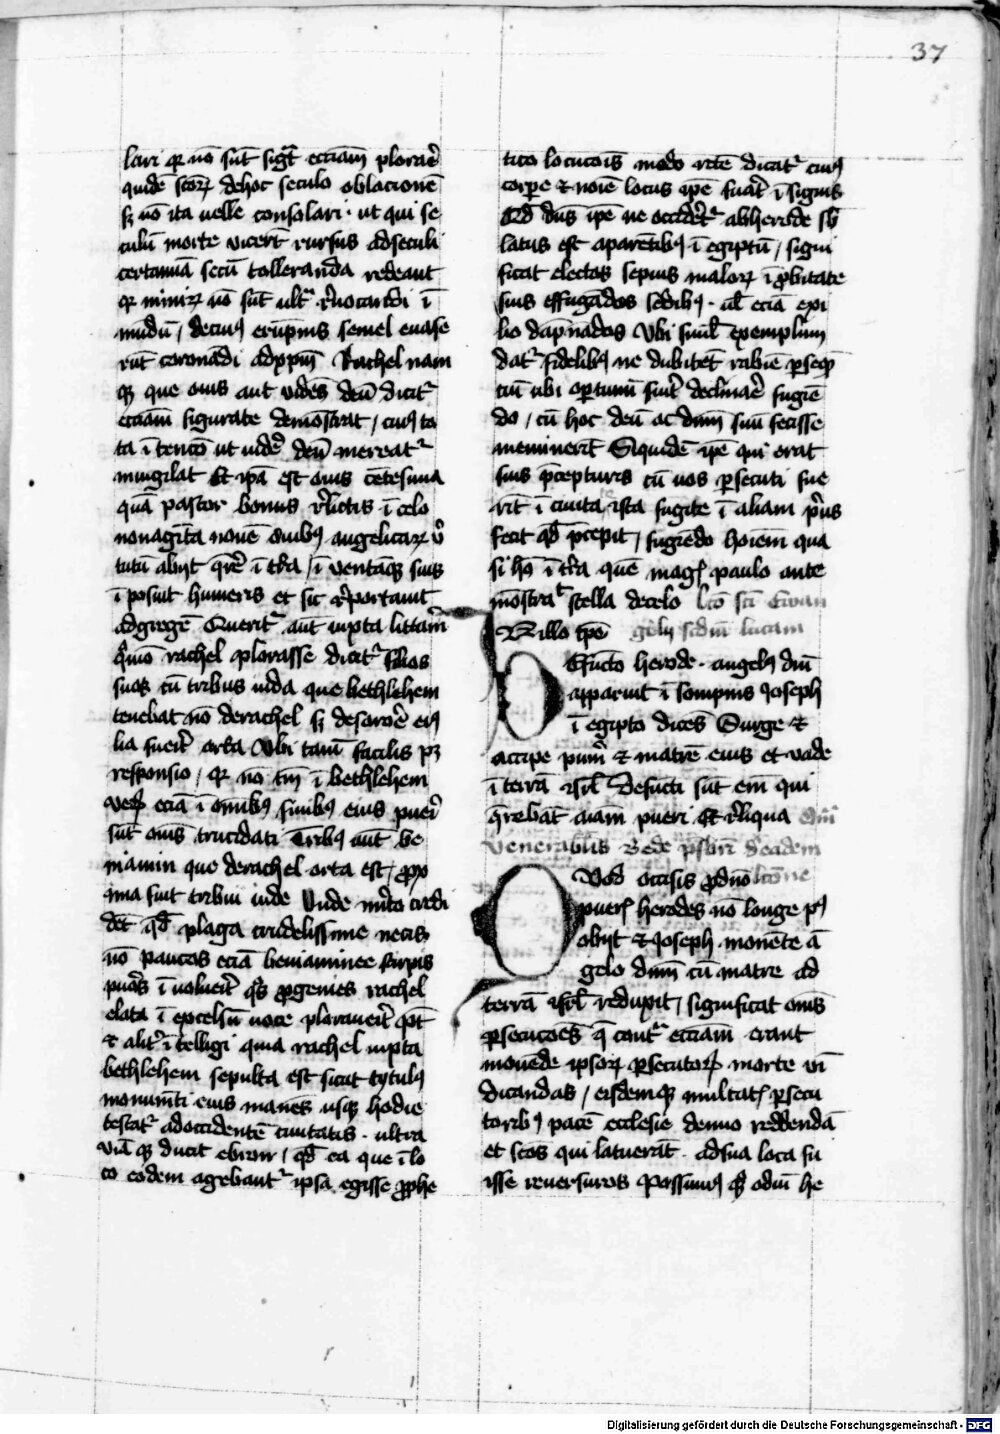 37
lari qr nō sūt sigt ecciam plorare
quidē scōrꝝ dehoc seculo oblacionē
sꝫ nō ita uelle consolari · ut qui se
culū morte vicerīt rursus adseculi
certamīa secū tolleranda redeant
rūt coronādi adxpm̄ Rachel nam
qꝫ que ouis aut vidēs deū dicitʳ
ecciam figurate demōstrat / cuiꝰ to
ta ītencō ut uideʳ deū mereatʳ
inuigilat Et ipā est ouis cētesima
quā pastor bonus rꝉictis ī celo
nonagīta nouē ouibꝰ angelicarꝝ v̄
tutū abijt qrē ī tꝛa / ī ventāqꝫ suis
ī posuit humeris et sic rꝓportauit
adgregē Queritʳ aūt iuxta littam
qūo rachel plorasse dicitʳ filios
suos cū tribus iuda que bethlehem
tenebat nō derachel sꝫ desorore eiꝰ
lia fuerīt orta Vbi tamē facilis pꝫ
responsio / qr nō tm̄ ī bethlehem
verꝝ eciā ī omībꝰ finibꝰ eius pueri
sūt om̄s trucidati Tribꝰ aūt be
niamin que derachel orta est / ꝓxi
ma fuit tribui iude Unde mīto credi
dēt qd̄ plaga crudelissime necis
nō paucos eciā beniaminee stirpis
puōs ī voluerit qs̄ ꝓgenies rachel
elata ī excelsū uoce plorauerit pt̄
et alitʳ ītelligi quia rachel iuxta
bethlehem sepulta est sicut tytulꝰ
monumīti eius manēs usqꝫ hodie
testatʳ adoccidentē ciuitatis · ultra
viā qꝫ ducit ebron / qd̄ ea que ī lo
co eodem agebantʳ ipsa egisse ꝓphe
tico locucōis modo rcē dicatʳ cuiꝰ
corpe et noīe locus ipē fuāt ī signis
Qd̄ dn̄s ipē ne occidētʳ abherode sb̄
latus est aparētibꝰ ī egiptū / signi
ficat electos sepius malorꝝ īꝓbitate
suis effugādos sedibꝰ · uꝉ eciā exi
lio dāpnādos Vbi simul exemplum
datʳ fidelibꝰ ne dubitēt rabiē ꝑseq̄
ciū ubi oportunū fuīt declinaē fugiē
do / cū hoc deū ac dnm̄ suū fecisse
meminerīt Siquidē ipē qui erat
suis p̄cepturus cū uos ꝑsecuti fue
rīt ī ciuitate ista fugite ī aliam pⁱus
fecit qd̄ p̄cepit / fugiēdo hoīem qua
si hō ī tꝛa quē magꝭ paulo ante
mōstrat stella decelo lcō scī Ewan
N illo tpē gelij scdm̄ lucam
Efuncto herode · angelꝰ dnī
apparuit ī sompnis Joseph
ī egipto dicēs Surge et
accipe puerū et matrē eius et vade
ī terrā isrꝉ Defūcti sūt em̄ qui
q̄rebāt aīam pueri Et rꝉiqua Omꝉ
venerabilis Bede p̄sbrī d̄eadem
Vod occisis ꝓdn̄o lcōne
puerꝭ herodes nō longe pꝰ
obijt et Joseph monēte ā
gelo dnm̄ cū matre ad
terrā isrꝉ reduxit / significat om̄s
ꝑsecucōēs q̄ contʳ ecciam erant
mouēde ipsorꝝ ꝑsecutorꝝ morte vī
dicandas / eisdemqꝫ multatꝭ ꝑsecu
toribꝰ pacē ecclesie denuo reddendā
et scōs qui latuerāt · adsua loca fu
isse reuersuros Possumꝰ qꝫ odiū he
Digitalisierung gefördert durch die Deutsche Forschungsgemeinschaft - DFG